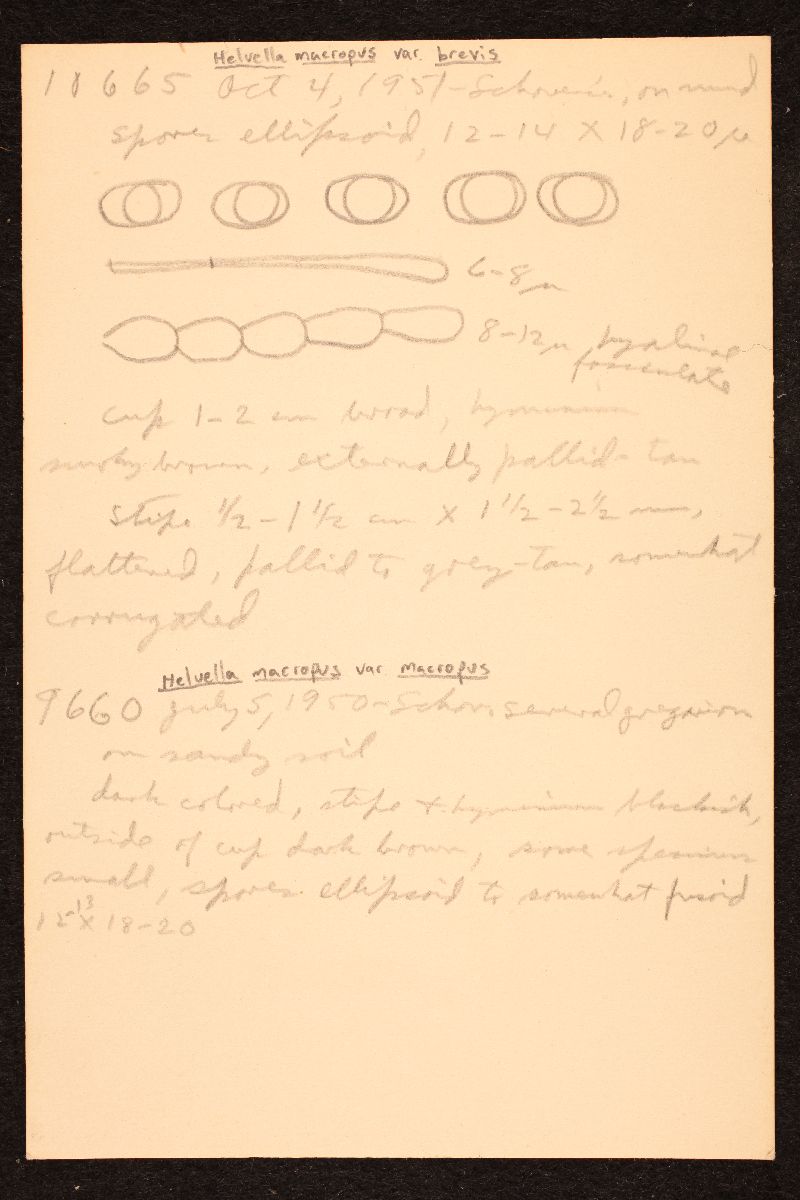 Helvella macropus var. brevis
10665 Oct 4, 1951 - Schovenis, on mud
spores ellipsoid, 12-14 X 18-20 µ
6-8 µ
8-12 µ hyaline
fasciculate
cup 1-2 cm broad, hymenium
smoky brown, externally pallid-tan
Stipe 1/2 - 1 1/2 cm X 1 1/2 - 2 1/2 mm,
flattened, pallid to grey-tan, somewhat
corrugated
Helvella macropus var. macropus
9660 July 5, 1950 - Schov. several gregarious
on sandy soil
dark colored, stipe + hymenium blackish,
outside of cup dark brown, some specimens
small, spores ellipsoid to somewhat fusoid
12-13 X 18-20